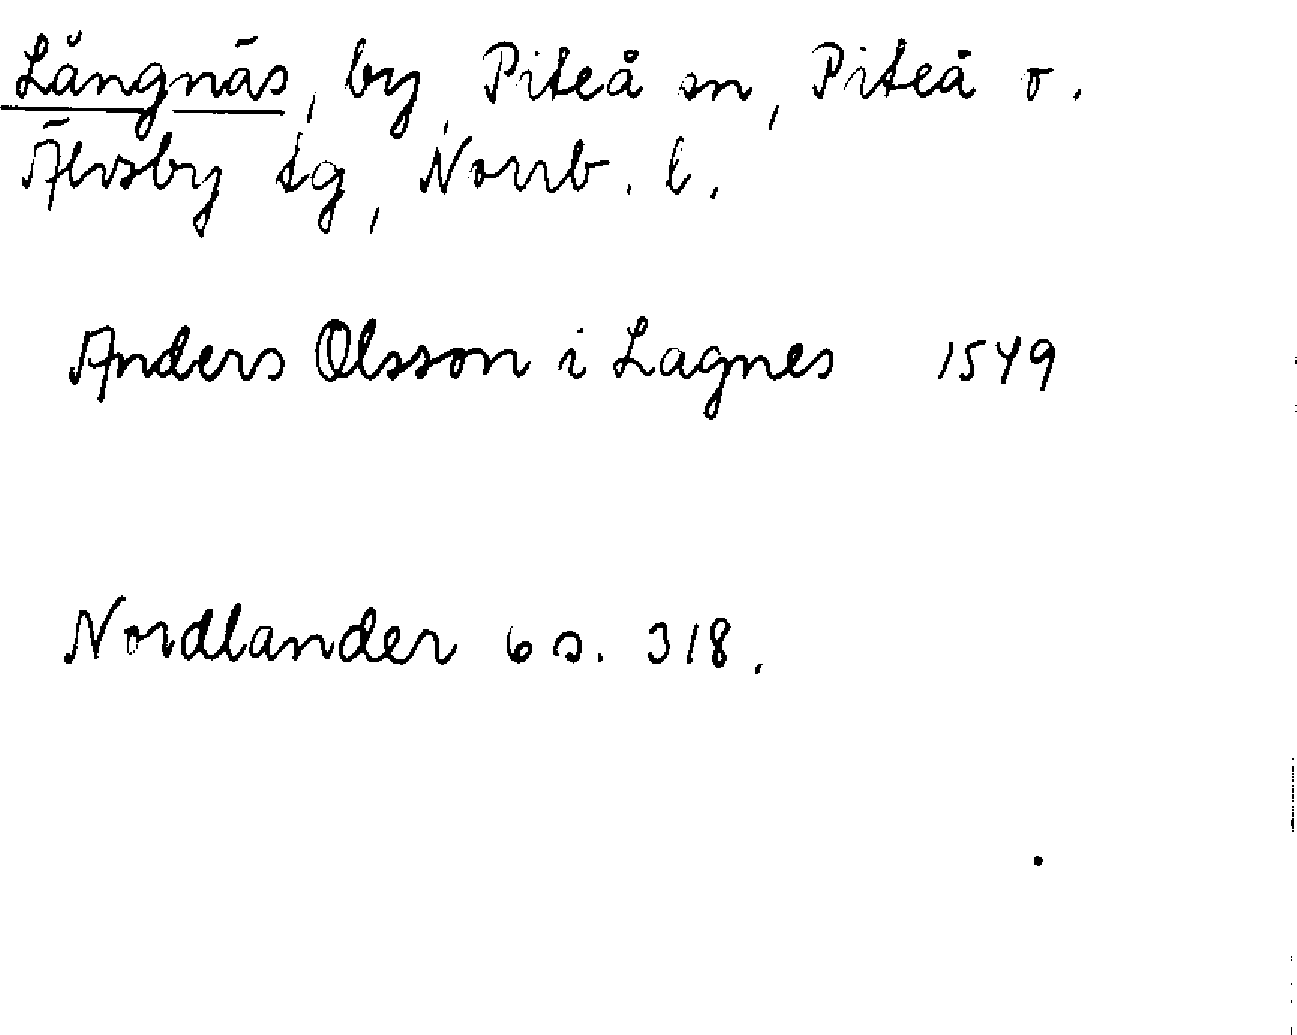 Långnäs, by, Piteå sn, Piteå o.
Älvsby tg, Norrb. l.
Anders Olsson i Lagnes 1549
Nordlander 6 s. 318.